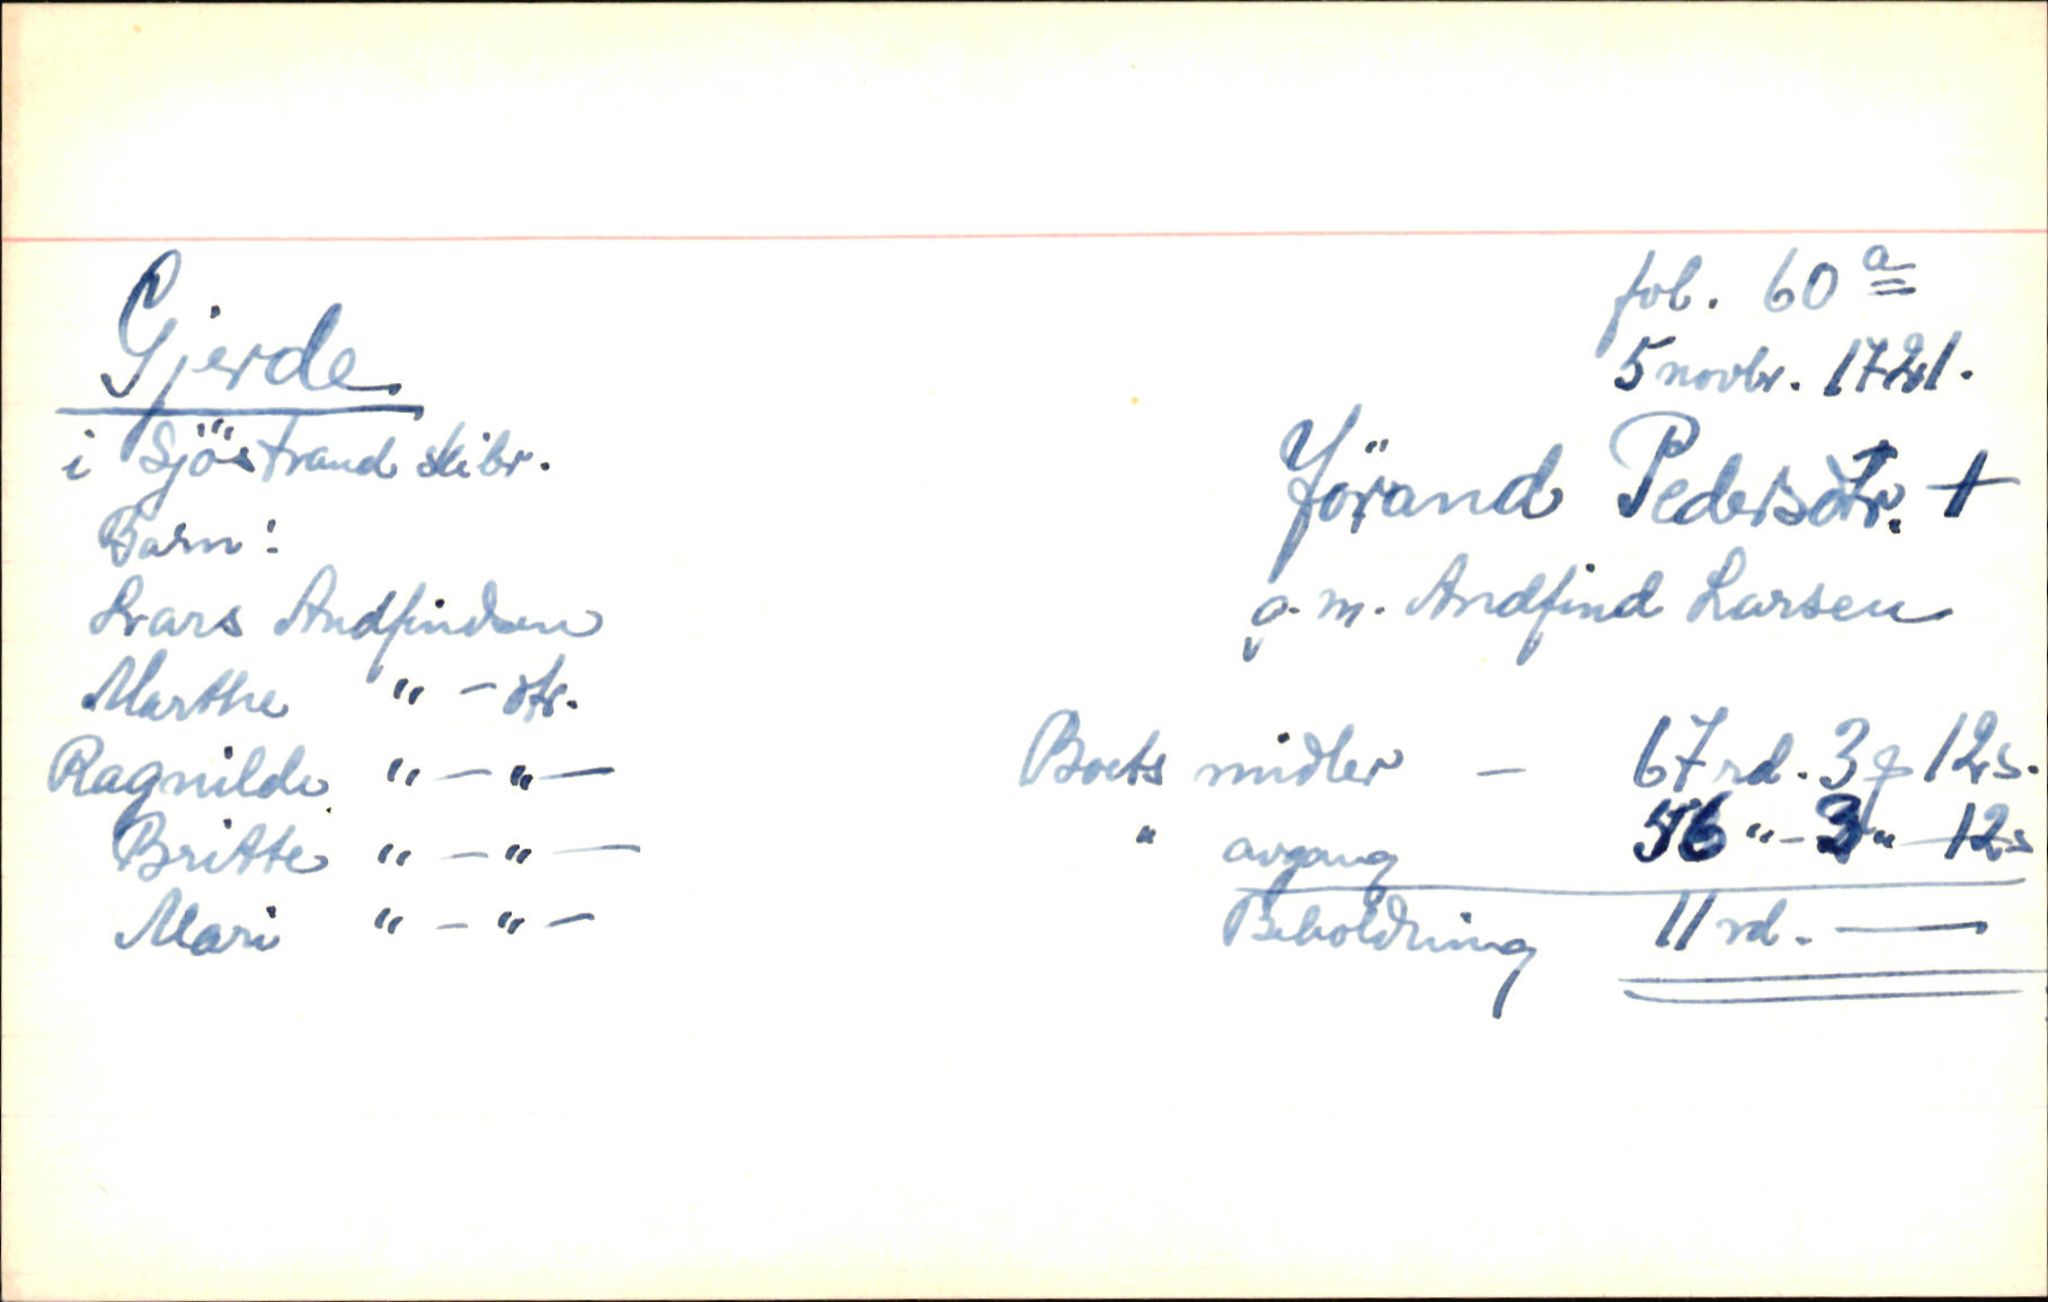 fol. 60 a
5 novbr. 1721.
Gjerde
i Sjöstrand skibr.
Jörand Pedersdtr. +
g. m. Andfind Larsen
Barn:
Lars Andfindsen
Marthe " - dtr.
Ragnilde " - " -
Britte " - " -
Mari " - " -
Boets midler - 67 rd. 3 q 12 s.
" avgang 56 " - 3 " - 12 s
Beholdning 11 rd. -